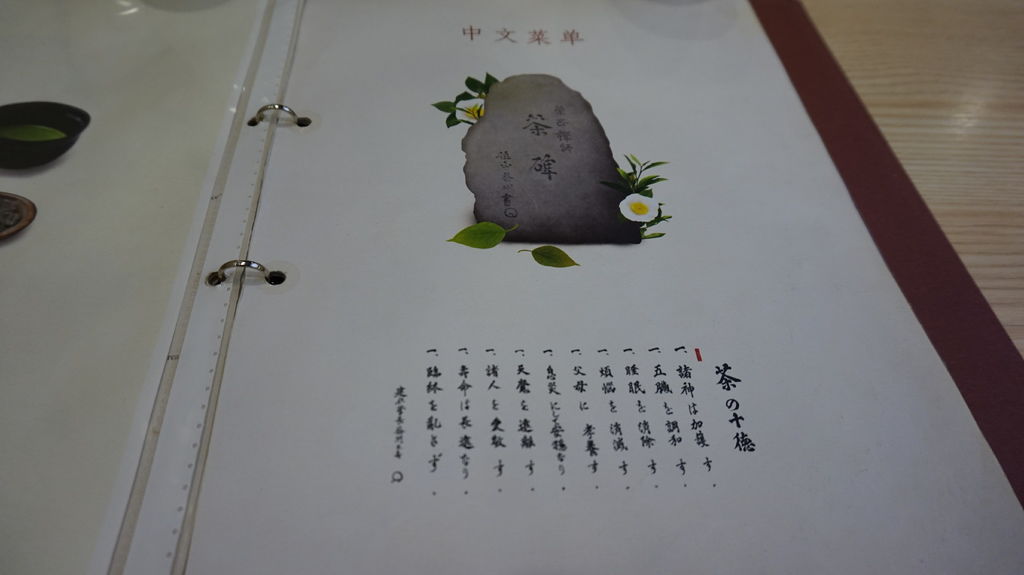 中文菜单
栄西禅師
茶碑
茶の十徳
一、諸神は加護す。
一、五臓を調和す。
一、睡眠を消除す。
一、煩悩を消滅す。
一、父母に孝養す。
一、息災にして安穏なり。
一、天魔を遠離す。
一、諸人を愛敬す。
一、寿命は長遠なり。
一、臨終を乱さず。